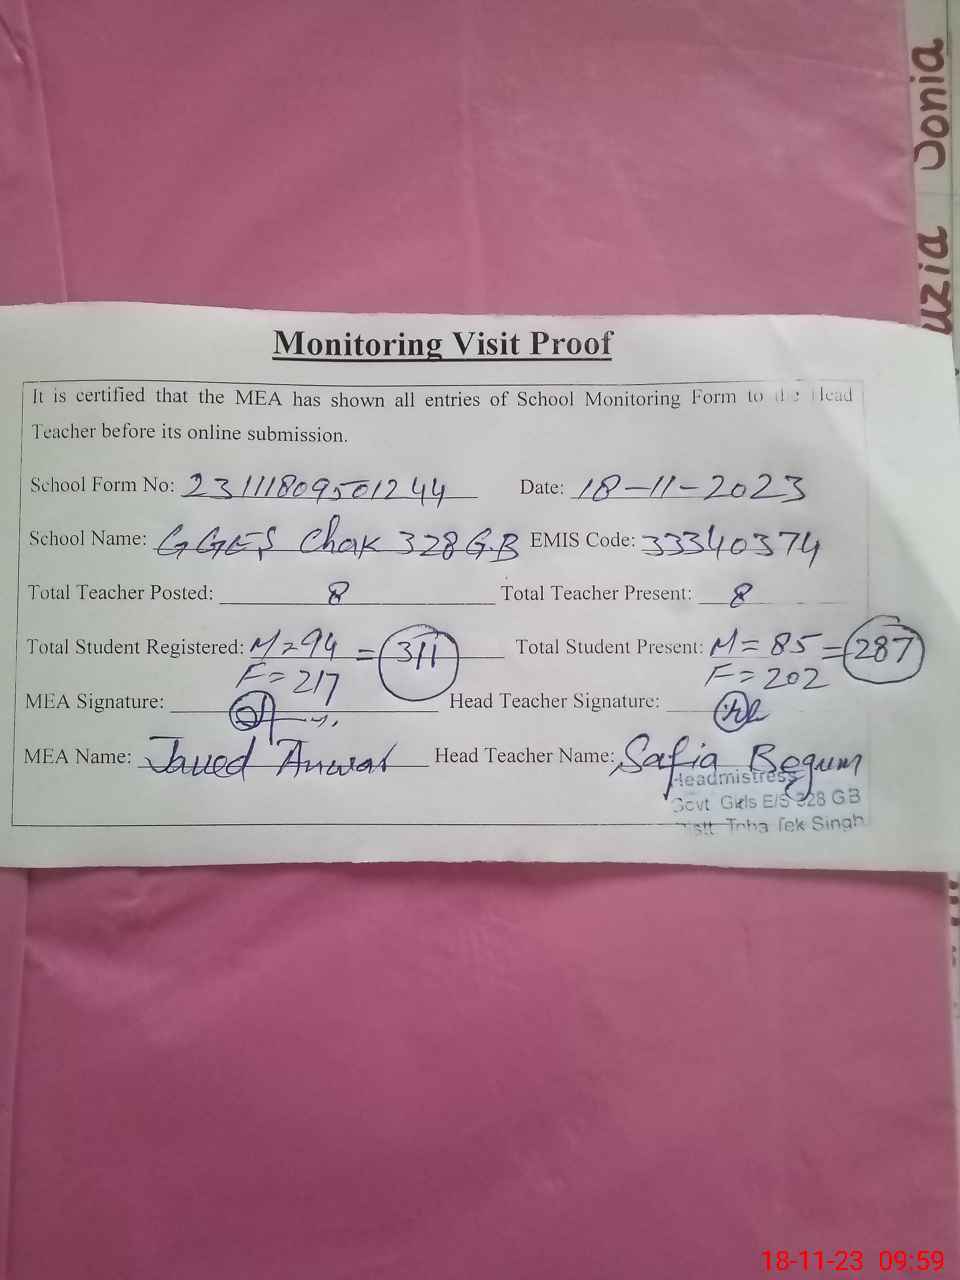 Sonia
uzia
Monitoring Visit Proof
It is certified that the MEA has shown all entries of School Monitoring Form to the Head
Teacher before its online submission.
School Form No: 23111809501244 Date: 18-11-2023
School Name: GGES Chak 328 G.B EMIS Code: 33340374
Total Teacher Posted: 8 Total Teacher Present: 8
Total Student Registered: M=94 = 311 Total Student Present: M=85 = 287
F=217 F=202
MEA Signature: Head Teacher Signature:
MEA Name: Javed Anwar Head Teacher Name: Safia Begum
Headmistress
Govt Girls E/S 328 GB
Distt Toba Tek Singh
18-11-23 09:59